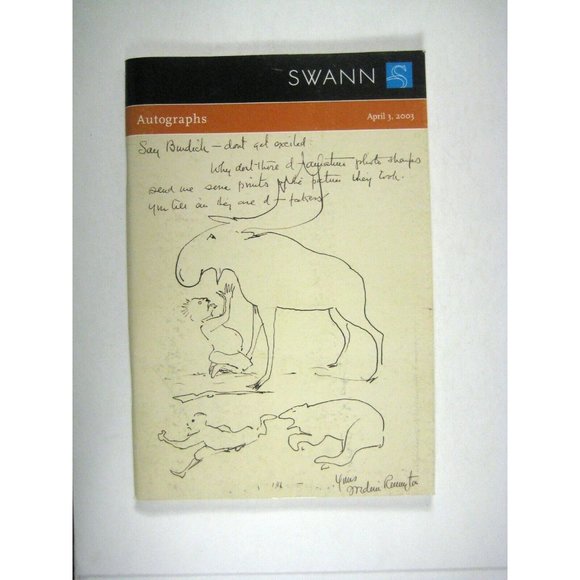 SWANN
Autographs
April 3, 2003
Say Burdick — dont get excited.
Why dont those d— amateur photo sharps
send me some prints of the picture they took.
you tell em they are d— fakers
Yours
Frederic Remington